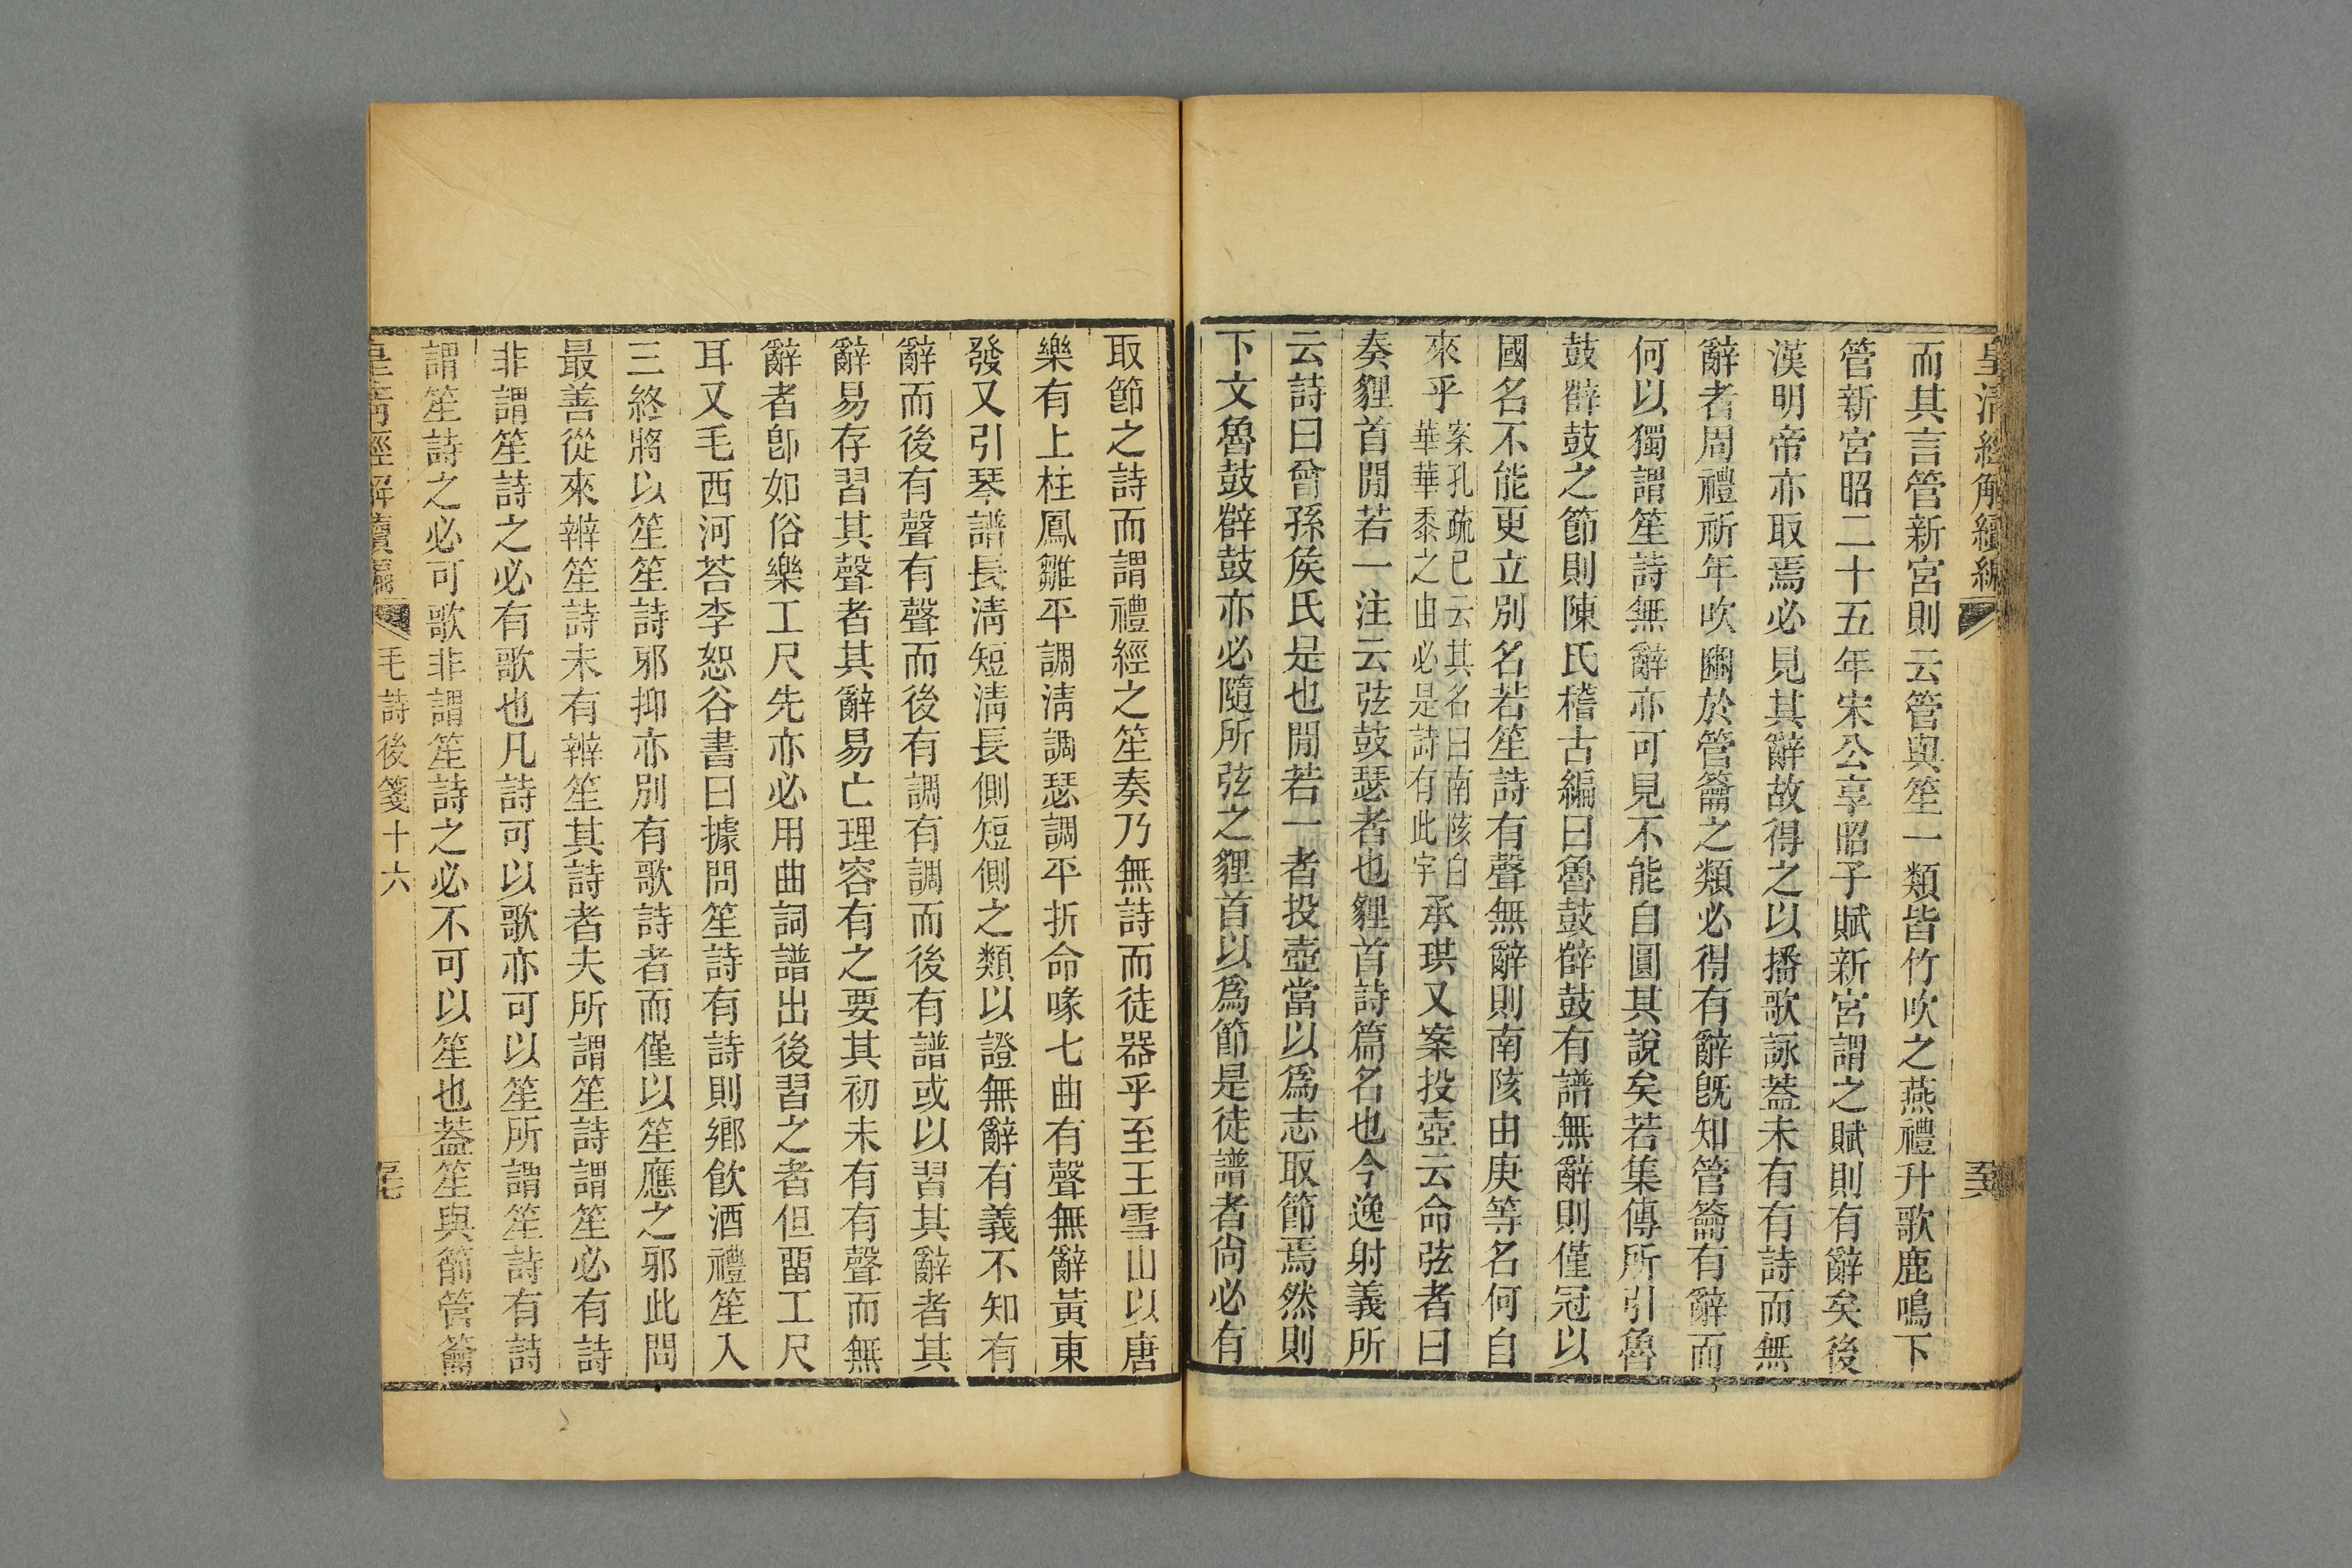 皇清經解續編
而其言管新宮則云管與笙一類皆竹吹之燕禮升歌鹿鳴下
管新宮昭二十五年宋公享昭子賦新宮謂之賦則有辭矣後
漢明帝亦取焉必見其辭故得之以播歌詠蓋未有有詩而無
辭者周禮祈年吹豳於管籥之類必得有辭旣知管籥有辭而
何以獨謂笙詩無辭亦可見不能自圓其說矣若集傳所引魯
鼓薛鼓之節則陳氏稽古編曰魯鼓薛鼓有譜無辭則僅冠以
國名不能更立別名若笙詩有聲無辭則南陔由庚等名何自
來乎案孔疏已云其名曰南陔白華華黍之由必是詩有此字承珙又案投壺云命弦者曰
奏貍首閒若一注云弦鼓瑟者也貍首詩篇名也今逸射義所
云詩曰曾孫矦氏是也閒若一者投壺當以爲志取節焉然則
下文魯鼓薛鼓亦必隨所弦之貍首以爲節是徒譜者尙必有
取節之詩而謂禮經之笙奏乃無詩而徒器乎至王雪山以唐
樂有上柱鳳雛平調淸調瑟調平折命喙七曲有聲無辭黃東
發又引琴譜長淸短淸長側短側之類以證無辭有義不知有
辭而後有聲有聲而後有調有調而後有譜或以習其辭者其
辭易存習其聲者其辭易亡理容有之要其初未有有聲而無
辭者卽如俗樂工尺先亦必用曲詞譜出後習之者但畱工尺
耳又毛西河荅李恕谷書曰據問笙詩有詩則鄉飮酒禮笙入
三終將以笙笙詩邪抑亦別有歌詩者而僅以笙應之邪此問
最善從來辨笙詩未有辨笙其詩者夫所謂笙詩謂笙必有詩
非謂笙詩之必有歌也凡詩可以歌亦可以笙所謂笙詩有詩
謂笙詩之必可歌非謂笙詩之必不可以笙也蓋笙與篪管籥
皇淸經解續編 毛詩後箋十六